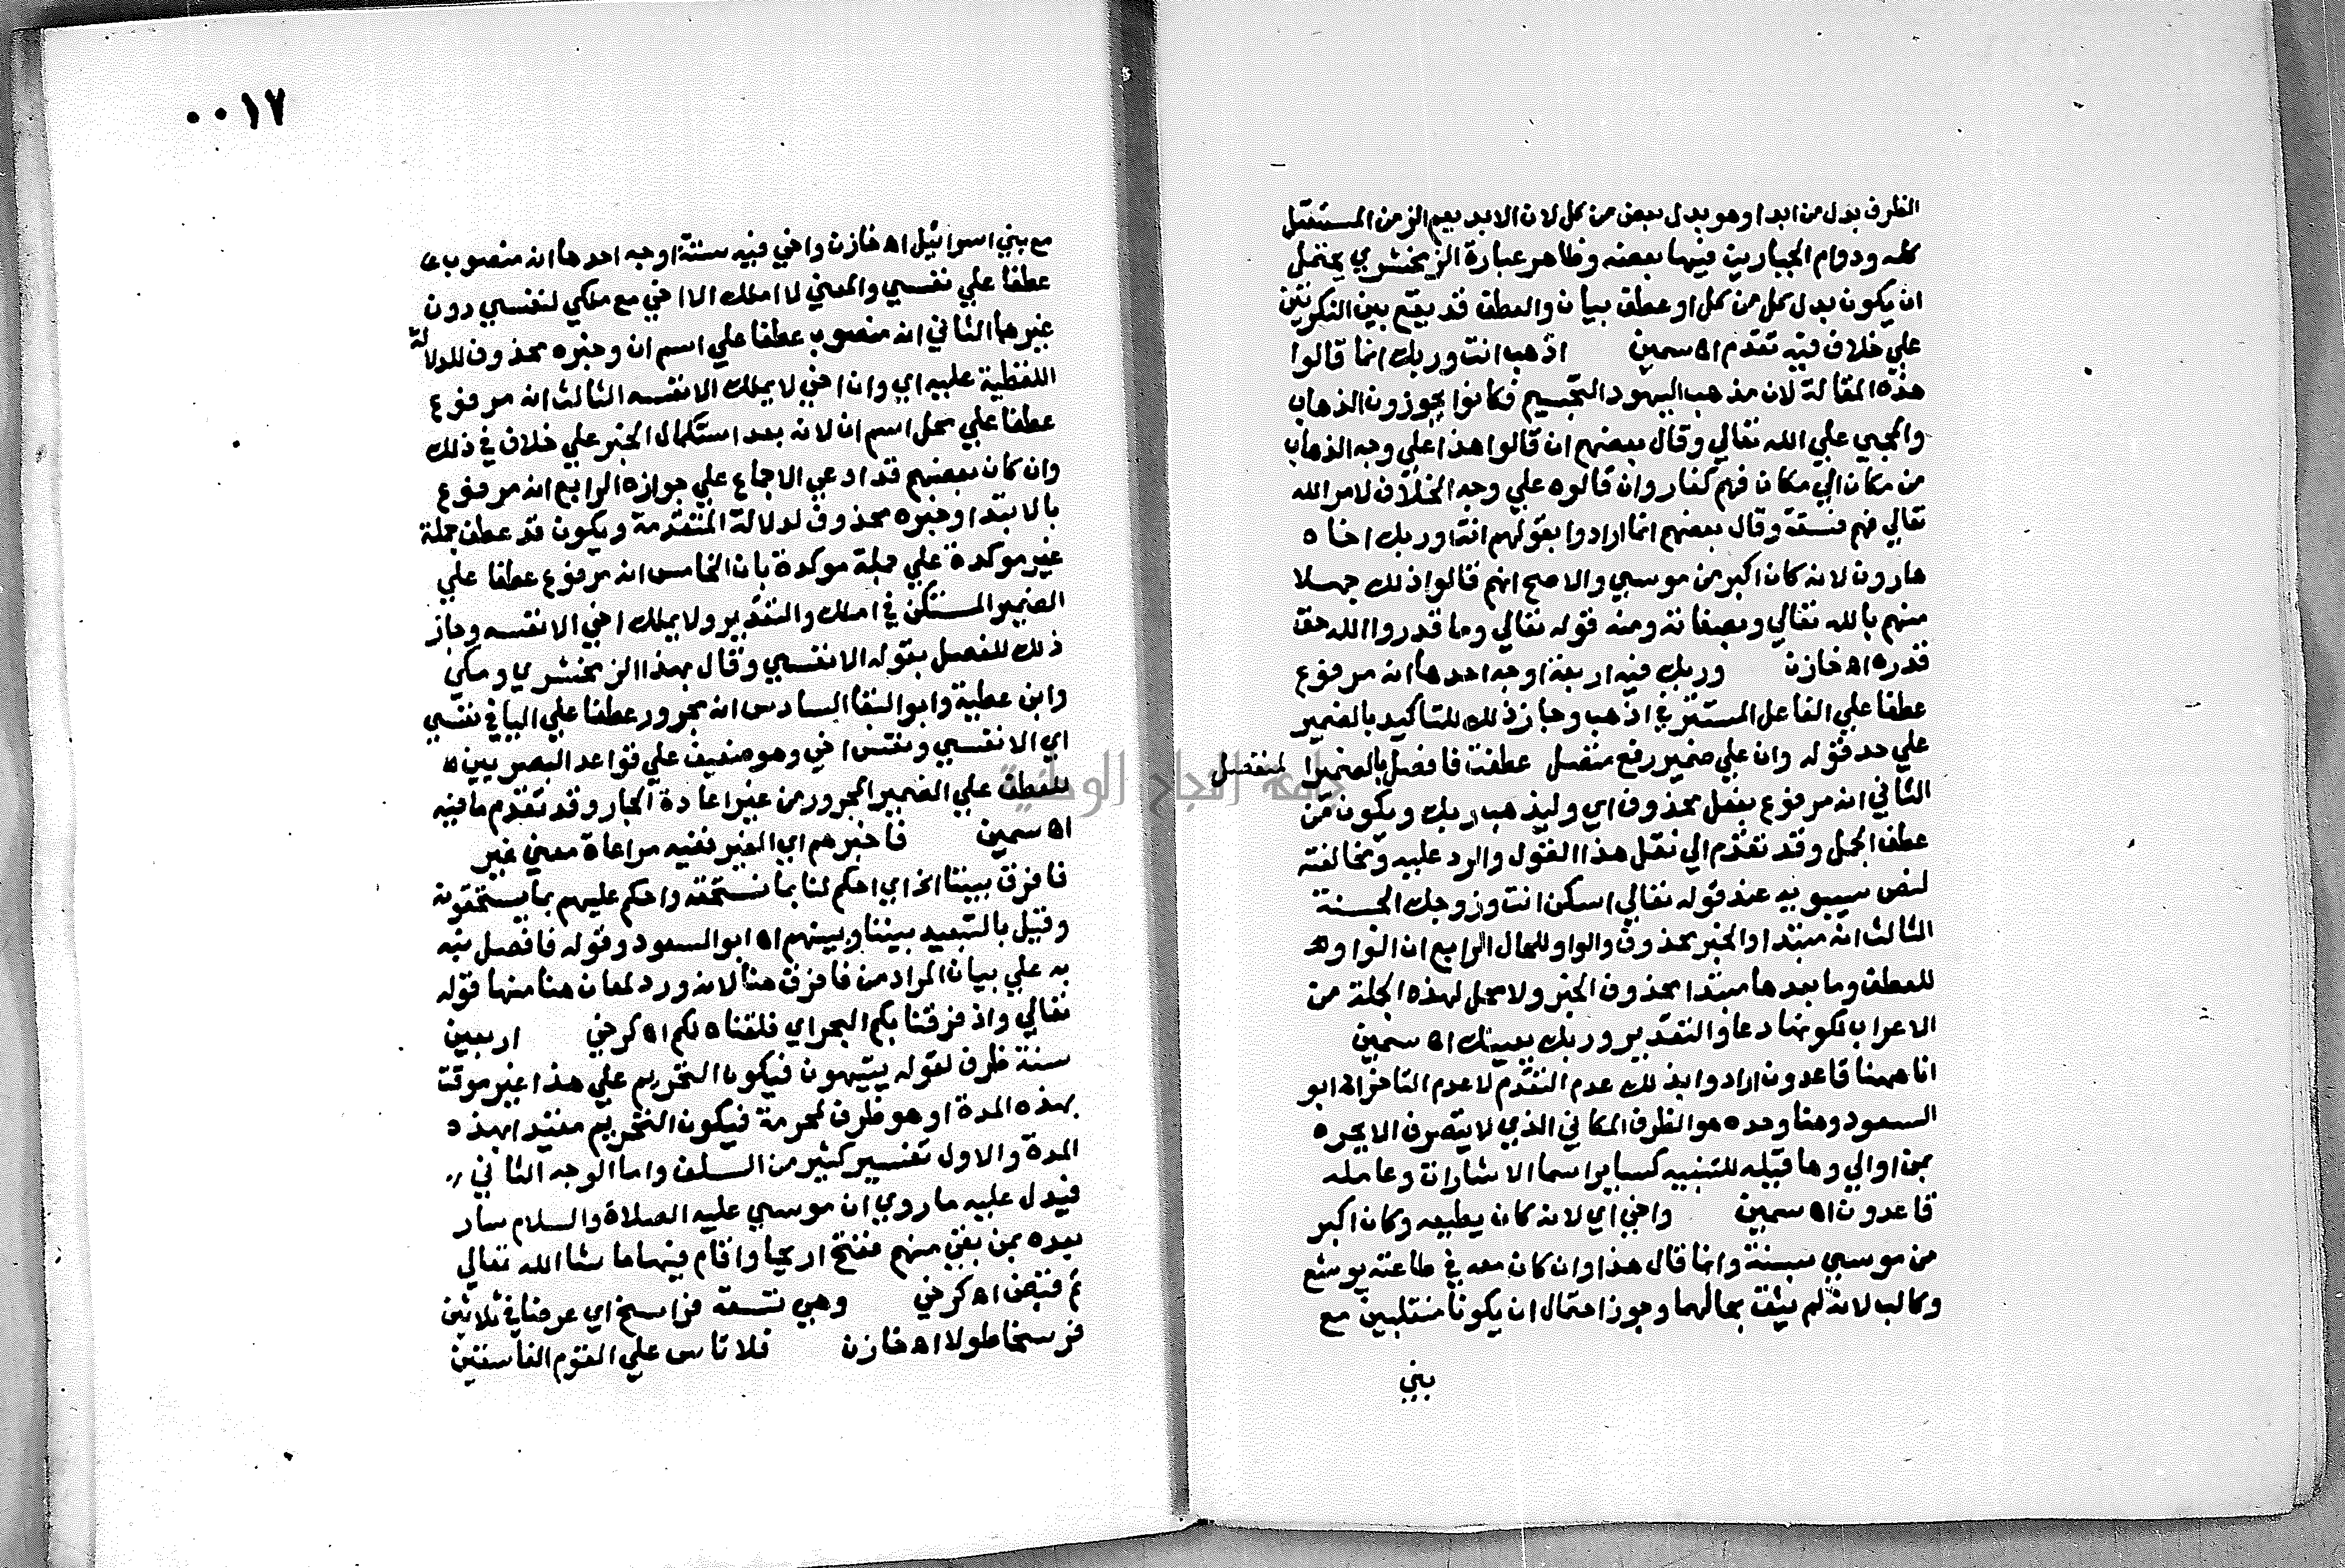 الظرف بدل من ابدا وهو بدل بعض من كل لان الابد يعم الزمن المستقبل
كله ودوام الجبارين فيها بعضه وظاهر عبارة الزمخشري يحتمل
ان يكون بدل كل من كل او عطف بيان والعطف قد يقع بين النكرتين
علي خلاف فيه تقدم اه سمين اذهب انت وربك انما قالوا
هذه المقالة لان مذهب اليهود التجسيم فكانوا يجوزون الذهاب
والمجي علي الله تعالي وقال بعضهم ان قالوا هذا علي وجه الذهاب
من مكان الي مكان فهم كفار وان قالوه علي وجه الخلاف لامر الله
تعالي فهم فسقة وقال بعضهم انما ارادوا بقولهم انت وربك اخاه
هارون لانه كان اكبر من موسي والاصح انهم قالوا ذلك جهلا
منهم بالله تعالي وبصفاته ومنه قوله تعالي وما قدروا الله حق
قدره اه خازن وربك فيه اربعة اوجه احدها انه مرفوع
عطفا علي الفاعل المستتر في اذهب وجاز ذلك للتاكيد بالضمير
علي حد قوله وان علي ضمير رفع متصل عطفت فافصل بالضمير المنفصل
الثاني انه مرفوع بفعل محذوف اي وليذهب ربك ويكون من
عطف الجمل وقد تقدم الي نقل هذا القول والرد عليه ومخالفته
لنص سيبويه عند قوله تعالي اسكن انت وزوجك الجنة
الثالث انه مبتدا والخبر محذوف والواو للحال الرابع ان الواو
للعطف وما بعدها مبتدا محذوف الخبر ولا محل لهذه الجملة من
الاعراب لكونها دعا والتقدير وربك يعينك اه سمين
انا ههنا قاعدون ارادوا بذلك عدم التقدم لا عدم التاخر اه ابو
السعود وهنا وحده هو الظرف المكاني الذي لا يتصرف الا بجره
بمن او الي وها قبله للتنبيه كساير اسما الاشارات وعامله
قاعدون اه سمين واخي اي لانه كان يطيعه وكان اكبر
من موسي بسنة وانما قال هذا وان كان معه في طاعته يوشع
وكالب لانه لم يثق بحالهما وجوز احتمال ان يكونا منقلبين مع
بني
٠٠١٧
مع بني اسرائيل اه خازن واخي فيه ستة اوجه احدها انه منصوب
عطفا علي نفسي والمعني لا املك الا اخي مع ملكي لنفسي دون
غيرها الثاني انه منصوب عطفا علي اسم ان وخبره محذوف للدلالة
اللفظية عليه اي وان اخي لا يملك الا نفسه الثالث انه مرفوع
عطفا علي محل اسم ان لانه بعد استكمال الخبر علي خلاف في ذلك
وان كان بعضهم قد ادعي الاجماع علي جوازه الرابع انه مرفوع
بالابتدا وخبره محذوف لدلالة المتقدمة ويكون قد عطف جملة
غير موكدة علي جملة موكدة بان الخامس انه مرفوع عطفا علي
الضمير المستكن في املك والتقدير ولا يملك اخي الا نفسه وجاز
ذلك للفصل بقوله الا نفسي وقال بهذا الزمخشري ومكي
وابن عطية وابو البقا السادس انه مجرور عطفا علي اليا في نفسي
اي الا نفسي ونفس اخي وهو ضعيف علي قواعد البصريين
للعطف علي الضمير المجرور من غير اعادة الجار وقد تقدم ما فيه
اه سمين فاخبرهم اي الغير ففيه مراعاة معني غير
فافرق بيننا الخ اي احكم لنا بما نستحقه واحكم عليهم بما يستحقونه
وقيل بالتبعيد بيننا وبينهم اه ابو السعود وقوله فافصل نبه
به علي بيان المراد من فافرق هنا لانه ورد لمعان هنا منها قوله
تعالي واذ فرقنا بكم البحر اي فلقناه لكم اه كرخي اربعين
سنة ظرف لقوله يتيهون فيكون التحريم علي هذا غير موقت
بهذه المدة او هو ظرف لمحرمة فيكون التحريم مقيدا بهذه
المدة والاول تفسير كثير من السلف واما الوجه الثاني
فيدل عليه ما روي ان موسي عليه الصلاة والسلام سار
بعده بمن بقي منهم ففتح اريحا واقام فيها ما شا الله تعالي
ثم قبض اه كرخي وهي تسعة فراسخ اي عرضا في ثلاثين
فرسخا طولا اه خازن فلا تاس علي القوم الفاسقين